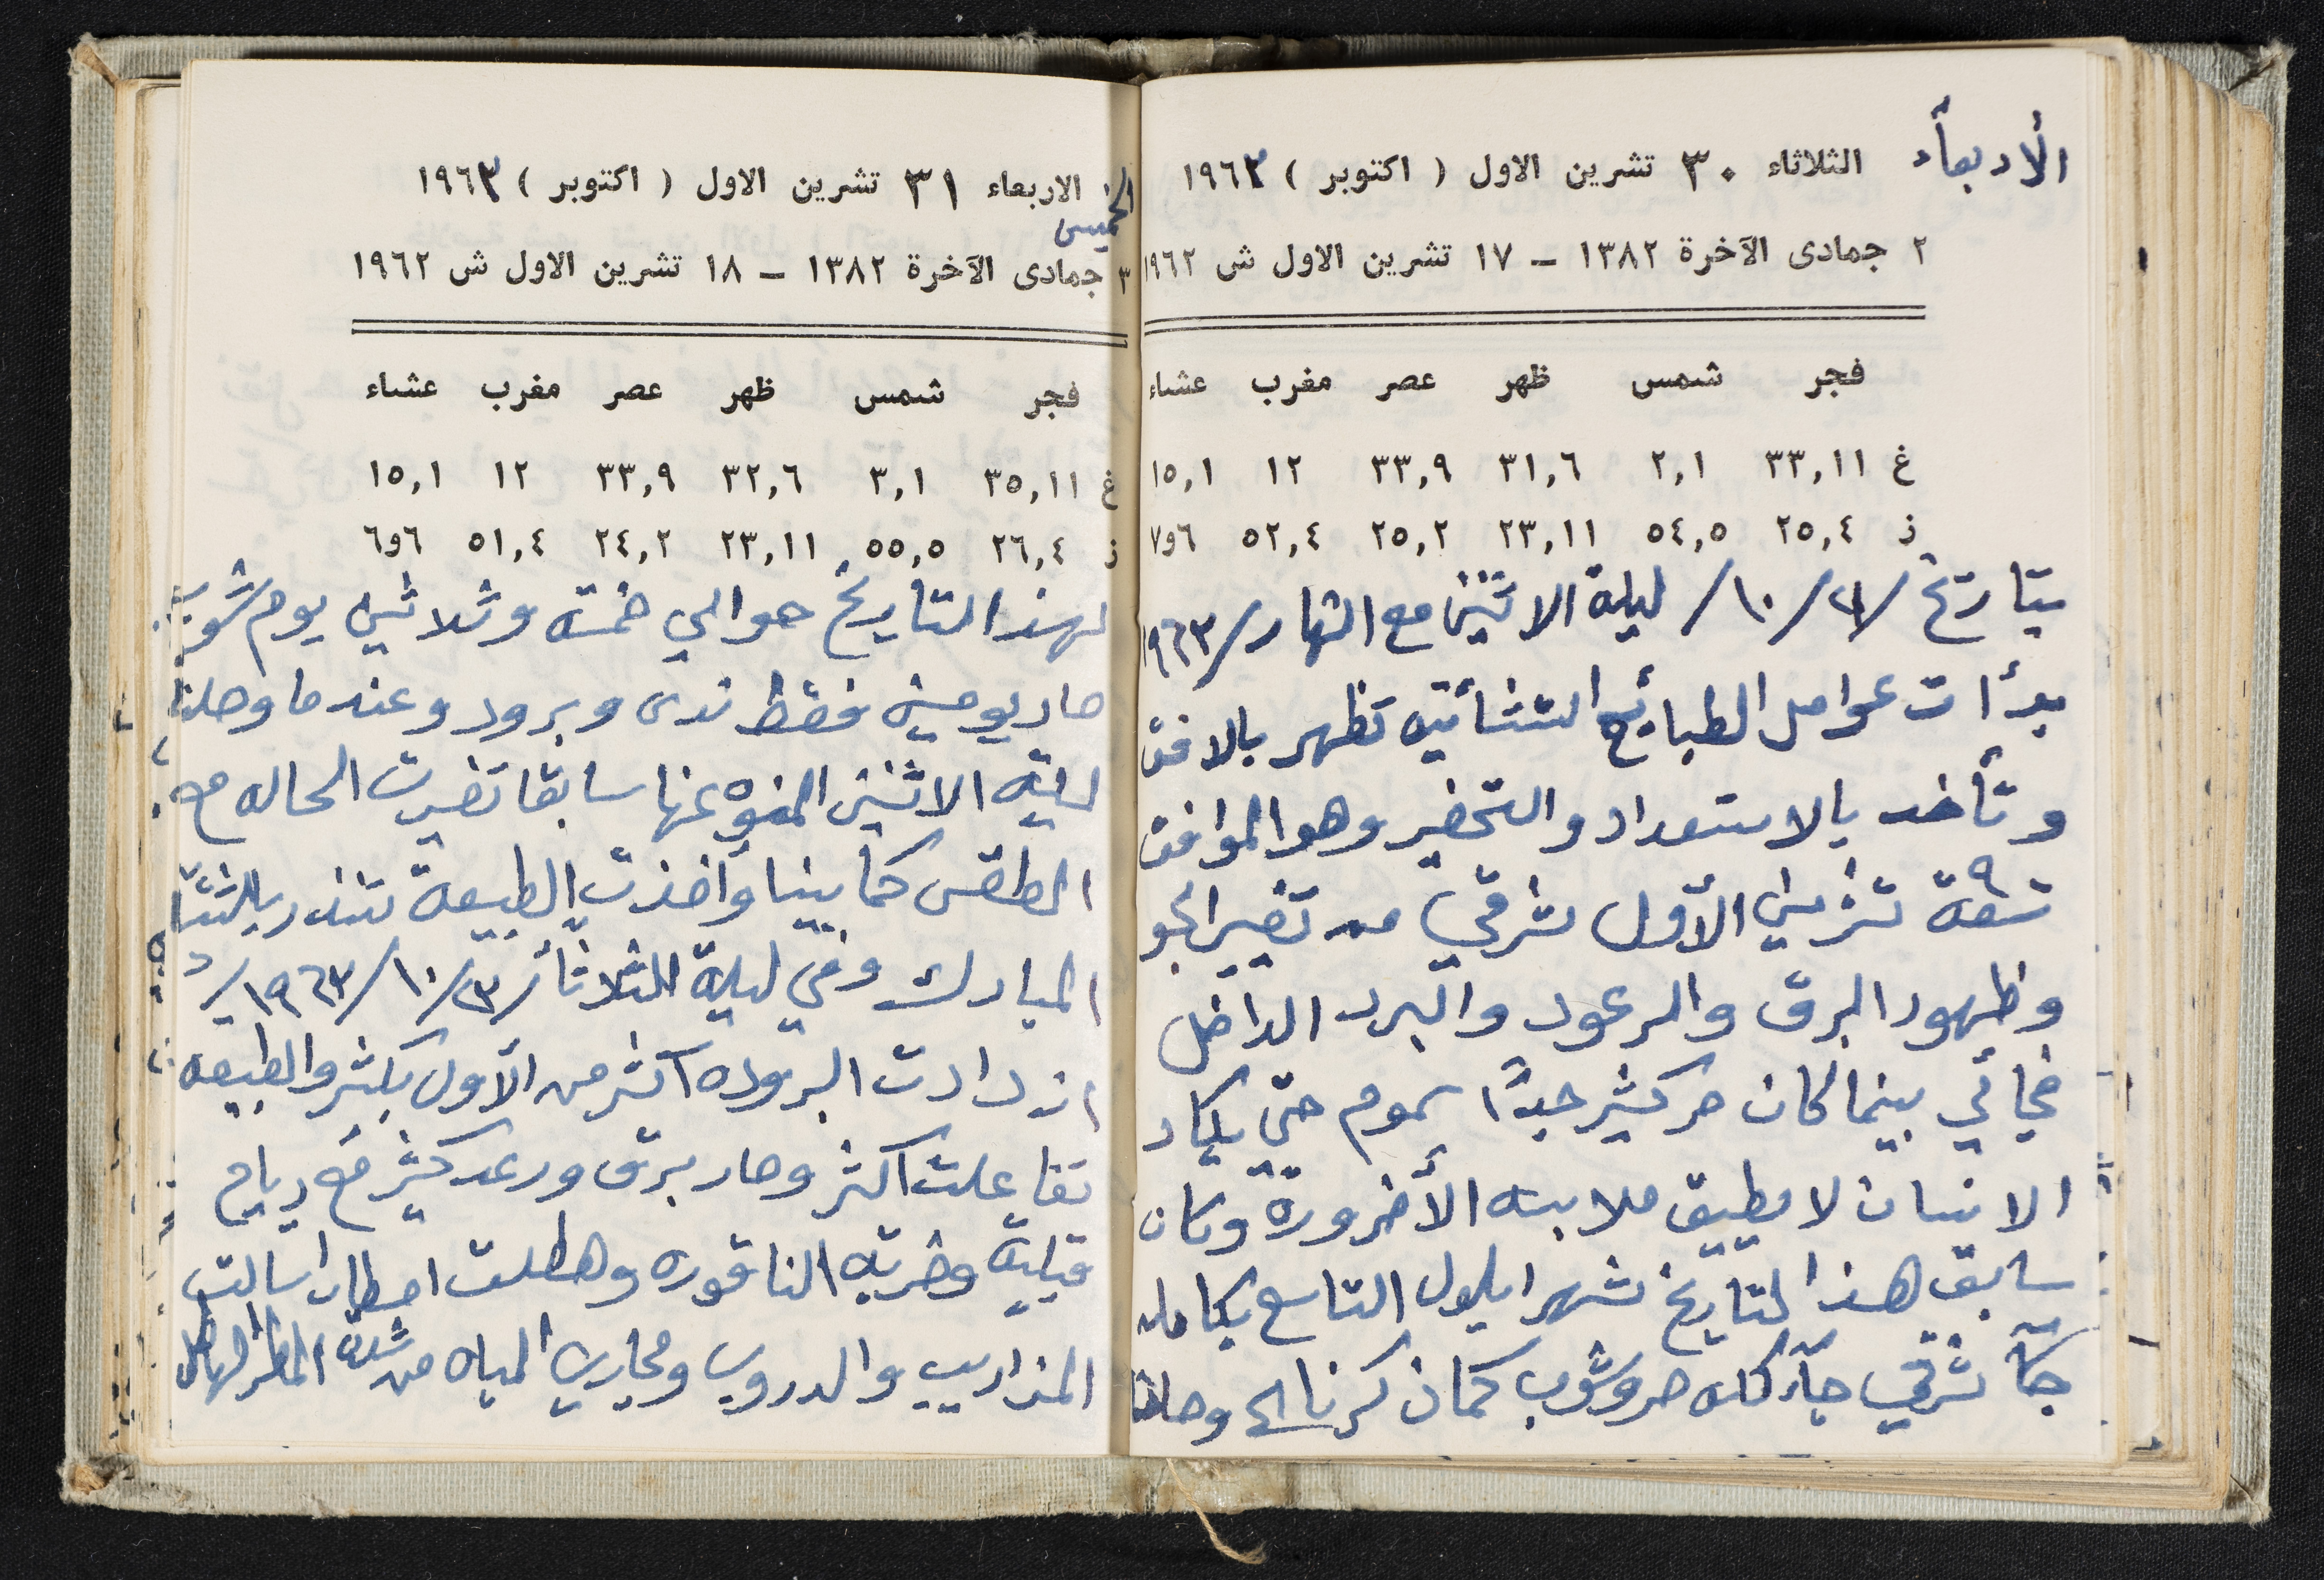 الأربعآء الثلاثاء ٣٠ تشرين الاول ( اكتوبر ) ١٩٦٣
٢ جمادى الآخرة ١٣٨٢ – ١٧ تشرين الاول ش ١٩٦٢
فجر شمس ظهر عصر مغرب عشاء
غ ٣٣,١١ ٢,١ ٣١,٦ ٣٣,٩ ١٢ ١٥,١
ز ٢٥,٤ ٥٤,٥ ٢٣,١١ ٢٥,٢ ٥٢,٤ ٧و٦
بتاريخ /٢١/١٠/ ليلة الاثنين مع النهار/١٩٦٣
بدأات عوامل الطبايع الشتائيه تظهر بالافق
وتأخد بالاستعداد والتحضير وهو الموافق
تسعة ٩ تشرين الأول شرقي من تغيير الجو
وظهور البرق والرعود والبرد الداخل
فجائي بينما كان حر كثير جداً سموم حتى يكاد
الانسان لا يطيق ملابسه الأضرورة وكان
سابق هذا التاريخ شهر ايلول التاسع بكامله
شرقي كله حر وشوب كمان كرنا الى وصلنا
الخميس الاربعاء ٣١ تشرين الاول ( اكتوبر ) ١٩٦٣
٣ جمادى الآخرة ١٣٨٢ – ١٨ تشرين الاول ش ١٩٦٢
فجر شمس ظهر عصر مغرب عشاء
غ ٣٥,١١ ٣,١ ٣٢,٦ ٣٣,٩ ١٢ ١٥,١
ز ٢٦,٤ ٥٥,٥ ٢٣,١١ ٢٤,٢ ٥١,٤ ٦و٦
لهذا التاريخ حوالي خمسة وثلاثين يوم شوب
صار يومين فقط ندى وبرود وعندما وصلنا
ليلة الاثنين المنوه عنها سابقا تغيرت الحاله مع
الطقس كما بينا وأخذت الطبيعة تنذر بالشتآ
المبارك وفي ليلة الثلاثأ /٢٢/١٠/١٩٦٣/
ازدادت البروده اكثر من الأول بكثير والطبيعه
تفاعلت اكثر وصار برق ورعد كثير مع رياح
قبليه وضربة الناقوره وهطلت امطارا سالت
المزاريب والدروب ومجاري المياه من شدة المطر الهاطل